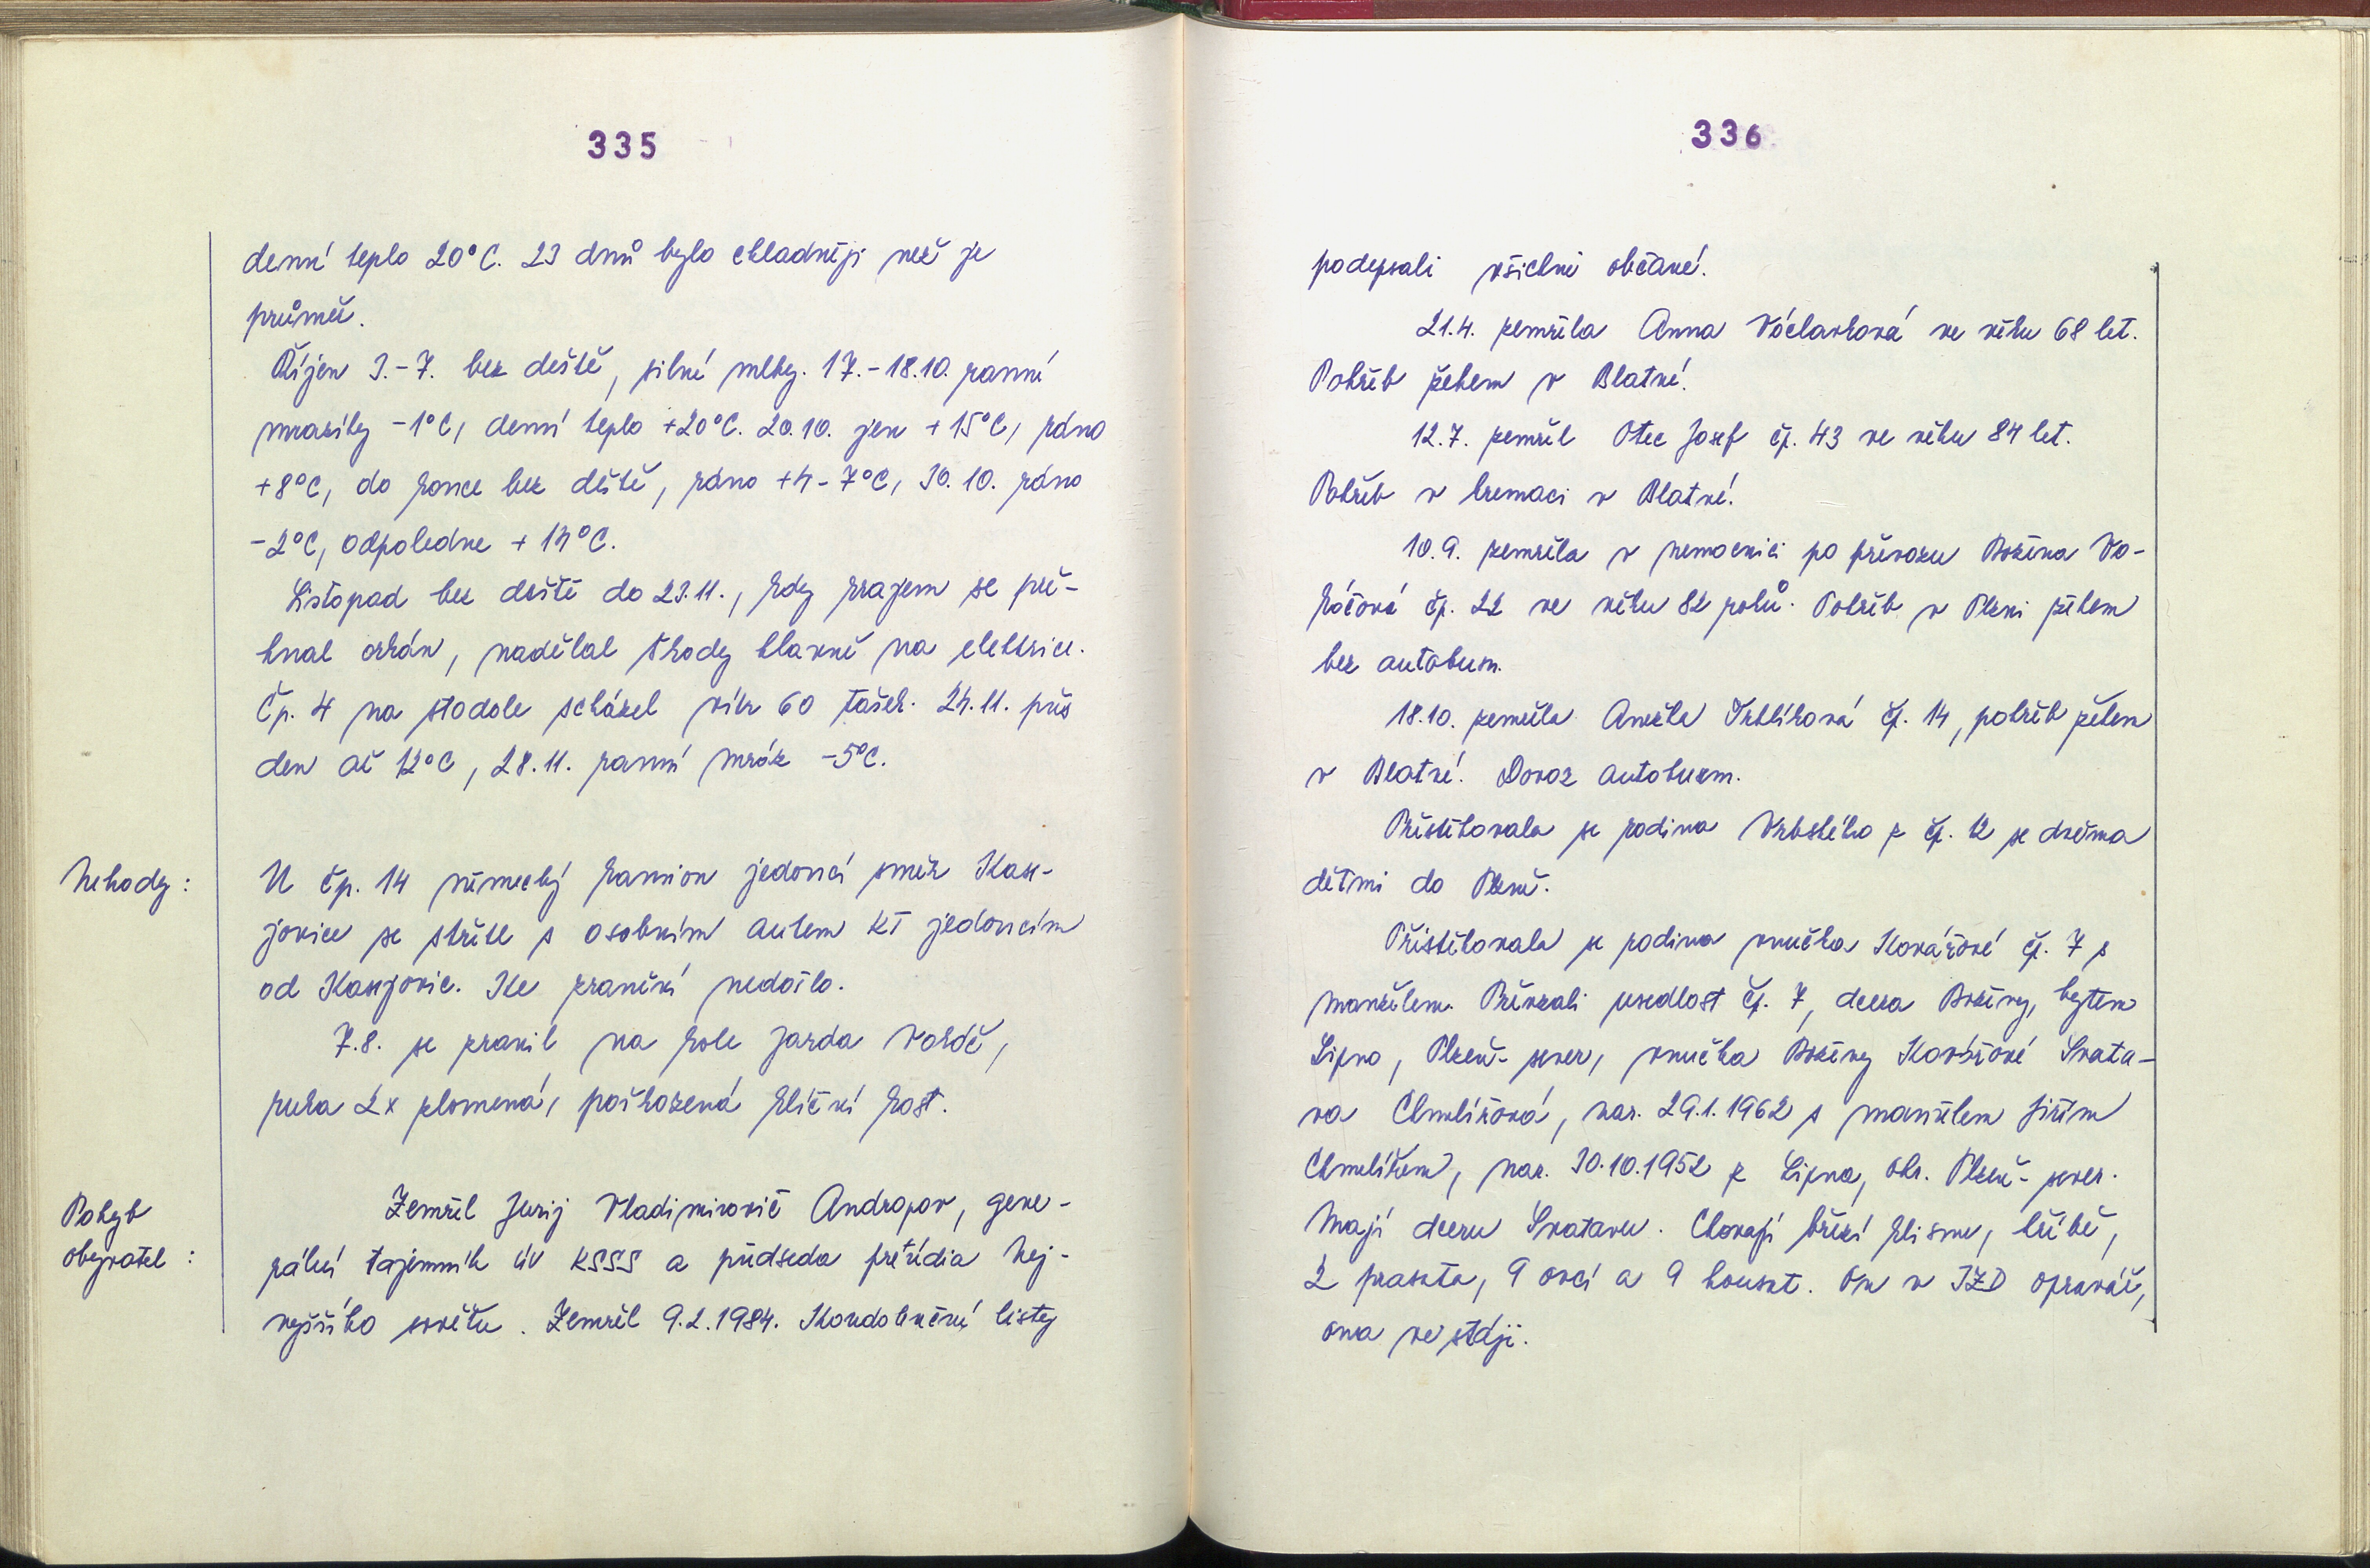 335
denní teplo 20°C. 23 dnů bylo chladněji než je
průměr.
Říjen 3.-7. bez deště, silné mlhy. 17.-18.10. ranní
mrazíky -1°C, denní teplo +20°C. 20.10. jen +15°C, ráno
+8°C, do konce bez deště, ráno +4-7°C, 30.10. ráno
-2°C, odpoledne +14°C.
Listopad bez deště do 23.11., kdy krajem se pře-
hnal orkán, nadělal škody hlavně na elektrice.
Čp. 4 na stodole scházel vikr 60 tašek. 24.11. přes
den až 12°C, 28.11. ranní mráz -5°C.
Nehody:
U čp. 14 německý kamion jedoucí směr Kase-
jovice se střetl s osobním autem KT jedoucím
od Kasejovic. Ke zranění nedošlo.
7.8. se zranil na kole Jarda Vokáč,
ruka 2x zlomená, poškozená klíční kost.
Pohyb
obyvatel:
Zemřel Jurij Vladimirovič Andropov, gene-
rální tajemník ÚV KSSS a předseda prezídia Nej-
vyššího sovětu. Zemřel 9.2.1984. Kondolenční listy
336
podepsali všichni občané.
21.4. zemřela Anna Václavková ve věku 68 let.
Pohřeb žehem v Blatné.
12.7. zemřel Otec Josef čp. 43 ve věku 84 let.
Pohřeb v kremaci v Blatné.
10.9. zemřela v nemocnici po převozu Božena Vo-
káčová čp. 22 ve věku 82 roků. Pohřeb v Plzni žehem
bez autobusu.
18.10. zemřela Anežka Trhlíková čp. 14, pohřeb žehem
v Blatné. Dovoz autobusem.
Přestěhovala se rodina Vrbského z čp. 12 se dvěma
dětmi do Plzně.
Přistěhovala se rodina vnučka Kovářové čp. 7 s
manželem. Převzali usedlost čp. 7, dcera Boženy, bytem
Lipno, Plzeň-sever, vnučka Boženy Kovářové Svata-
va Chmelířová, nar. 29.1.1962 s manželem Jiřím
Chmelířem, nar. 30.10.1952 z Lipna, okr. Plzeň-sever.
Mají dceru Svatavu. Chovají březí klisnu, hříbě,
2 prasata, 9 ovcí a 9 housat. On v JZD opravář,
ona ve stáji.